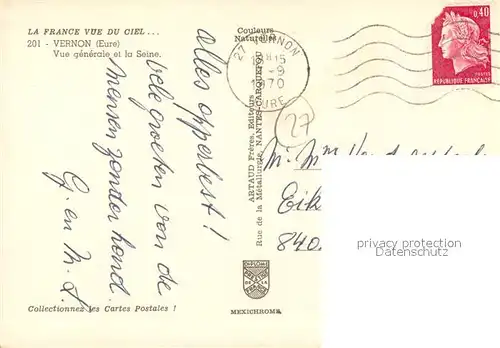 LA FRANCE VUE DU CIEL...
201 - VERNON (Eure)
Vue générale et la Seine.
Couleurs
Naturelles
27 VERNON
18H15
-9
1970
EURE
0,40
POSTES
REPUBLIQUE FRANÇAISE
27
alles opperbest!
vele groeten van de
mensen zonder hond.
G. en M. S.
ARTAUD Frères, Editeurs
Rue de la Métallurgie, NANTES-CARQUEFOU
M. Mme
Eik
840
privacy protection
Datenschutz
DIPLOME
MEXICHROME
Collectionnez les Cartes Postales !